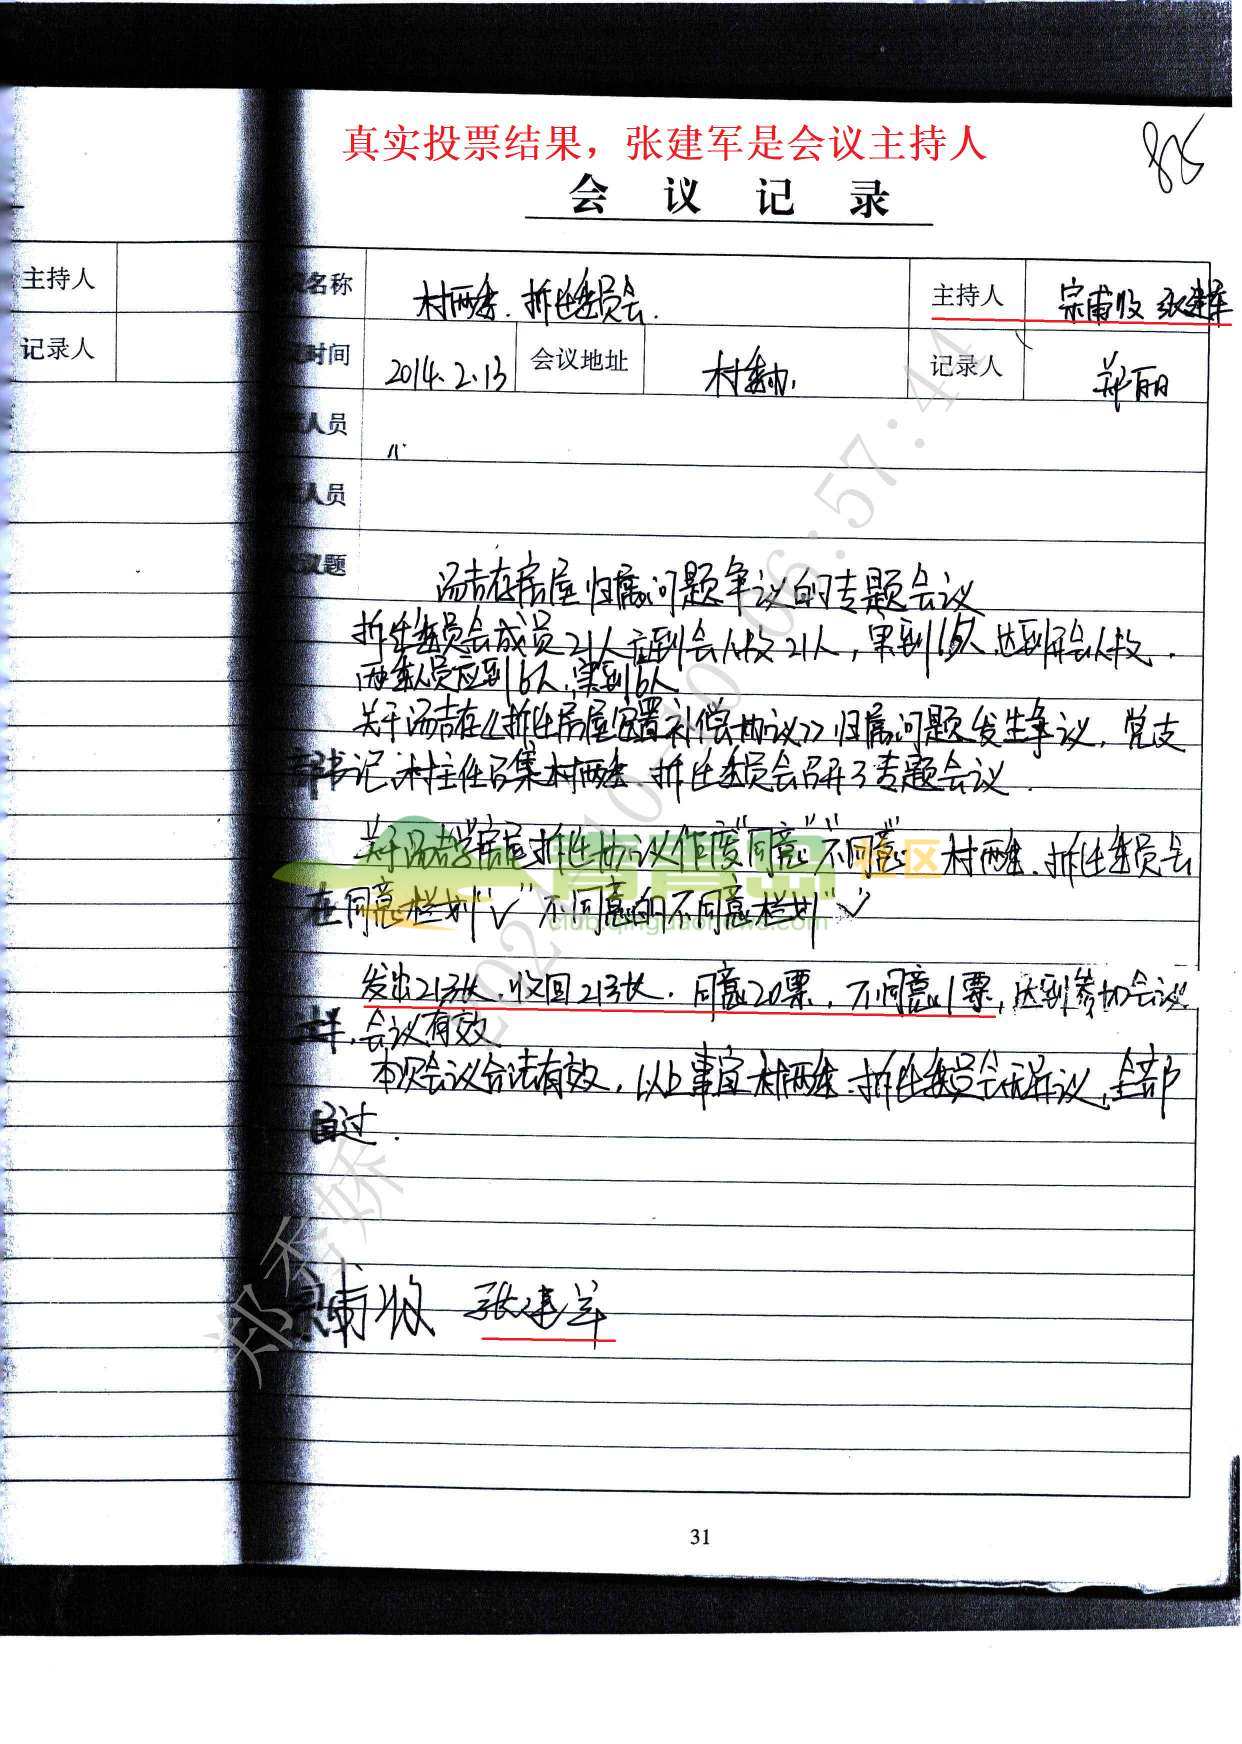 真实投票结果，张建军是会议主持人
826
会 议 记 录
主持人
名称
村两委、拆迁委员会.
主持人
宗甫收 张建军
记录人
时间
2014.2.13
会议地址
村委办
记录人
郑丽
人员
人员
议题
汤吉存房屋归属问题争议的专题会议
拆迁委员会成员21人应到会人数21人，实到16人，达到开会人数.
两委人员应到6人，实到6人
关于汤吉存《拆迁房屋安置补偿协议》归属问题发生争议，党支
部书记、村主任召集村两委、拆迁委员会召开了专题会议.
关于汤吉存房屋拆迁协议作废"同意""不同意" 村两委、拆迁委员会
在同意栏划"√" 不同意的不同意栏划"√"
青青岛 社区
club.qingdaonews.com
发出21张，收回21张. 同意20票，不同意1票，达到参加会议
半，会议有效
本次会议合法有效，以上事宜村两委、拆迁委员会无异议，全部
通过.
甫收 张建军
郑秀娇 2024-10-10 06:57:44
31